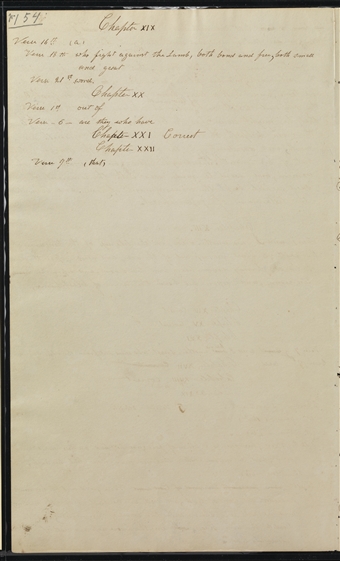 154
Chapter XIX
Verse 15th (a)
Verse 18th who fight against the Lamb, both bond and free, both small
and great
Verse 21st
Chapter XX
Verse 1st out of
Verse – 6 – are they who have
Chapter XXI Correct
Chapter XXII
Verse 9th (that)